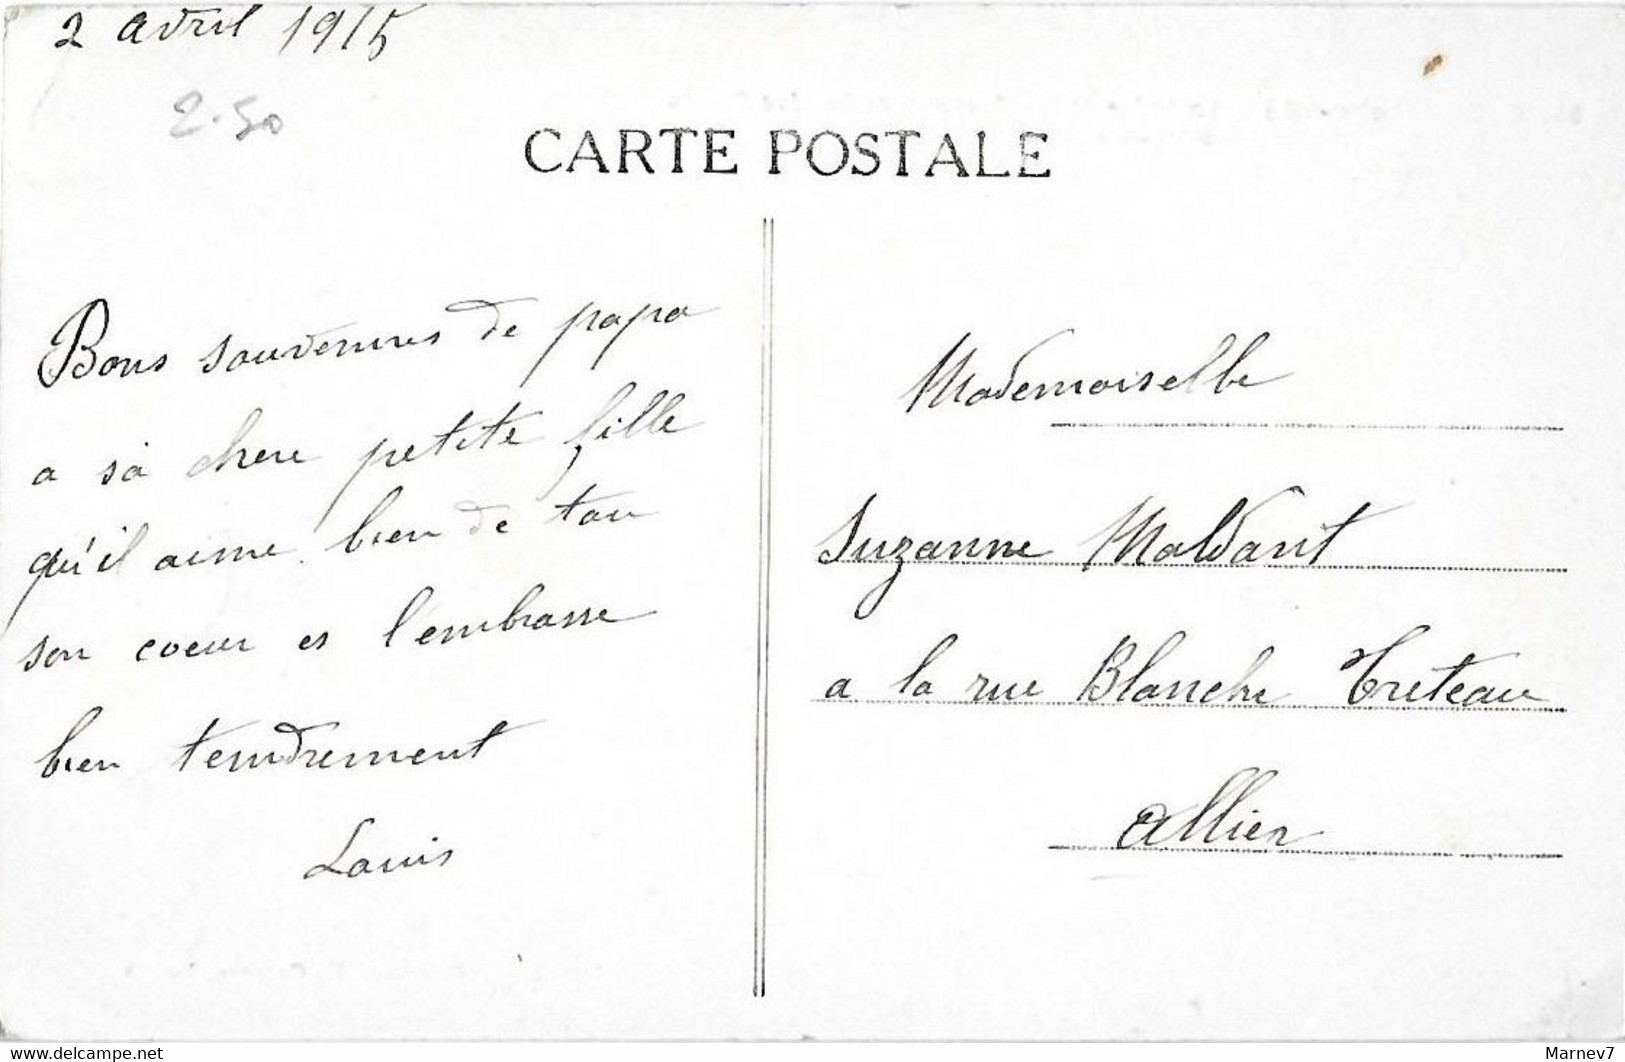 2 avril 1915
2.50
CARTE POSTALE
Bons souvenirs de papa
a sa chere petite fille
qu'il aime bien de tou
son coeur es l'embrasse
bien tendrement
Louis
Mademoiselle
Suzanne Maldant
a la rue Blanche Treteau
Allier
www.delcampe.net
Marnev7